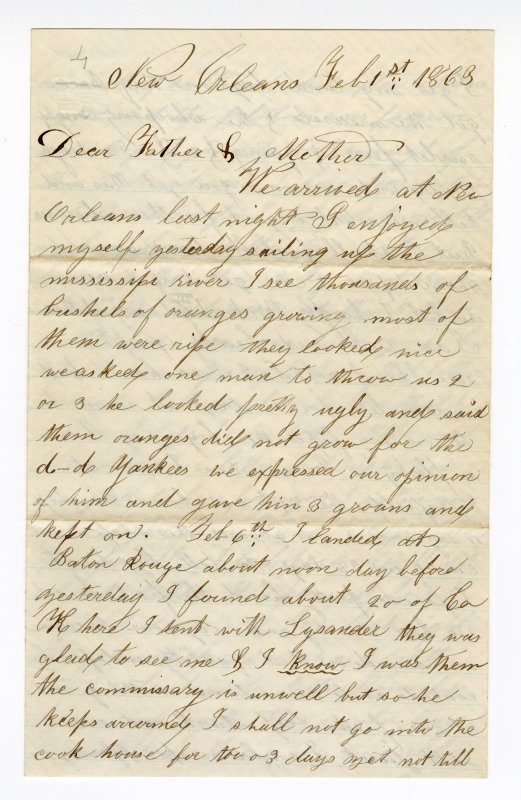 4
New Orleans Feb 1st 1863
Dear Father & Mother
We arrived at New
Orleans last night I enjoyed
myself yesterday sailing up the
mississipi river I see thousands of
bushels of oranges growing most of
them were ripe they looked nice
we asked one man to throw us 2
or 3 he looked pretty ugly and said
them oranges did not grow for the
d-d Yankees we expressed our opinion
of him and gave him 3 groans and
kept on. Feb 6th I landed at
Baton Rouge about noon day before
yesterday I found about 20 of Co
K here I tent with Lysander they was
glad to see me & I know I was them
the commissary is unwell but so he
keeps arround I shall not go into the
cook house for two o 3 days yet not till